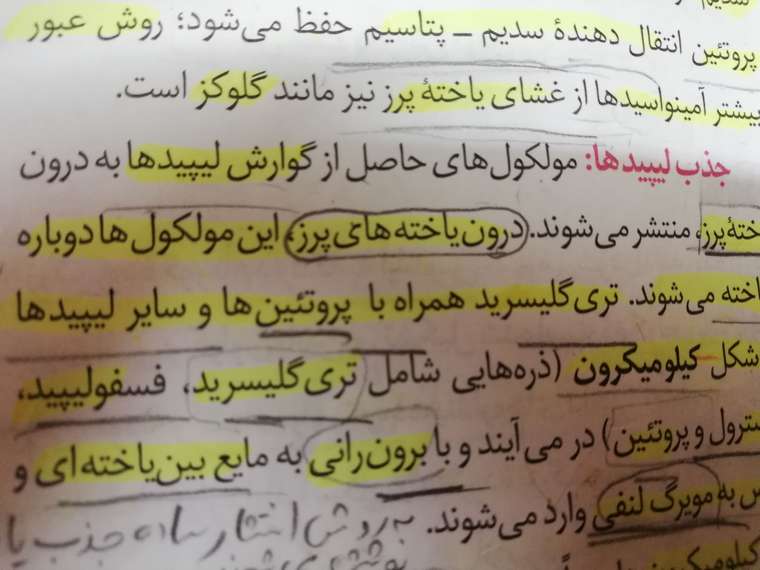 سدیم
پروتئین انتقال دهندهٔ سدیم ـ پتاسیم حفظ می‌شود؛ روش عبور
بیشتر آمینواسیدها از غشای یاختهٔ پرز نیز مانند گلوکز است.
جذب لیپیدها: مولکول‌های حاصل از گوارش لیپیدها به درون
ختهٔ پرز، منتشر می‌شوند. درون یاخته‌های پرز، این مولکول ها دوباره
اخته می‌شوند. تری‌گلیسرید همراه با پروتئین‌ها و سایر لیپیدها
شکل کیلومیکرون (ذره‌هایی شامل تری‌گلیسرید، فسفولیپید،
سترول و پروتئین) در می‌آیند و با برون‌رانی به مایع بین‌یاخته‌ای و
س به مویرگ لنفی وارد می‌شوند.
به روش انتشار ساده جذب یا
کیلومیکرون‌ها